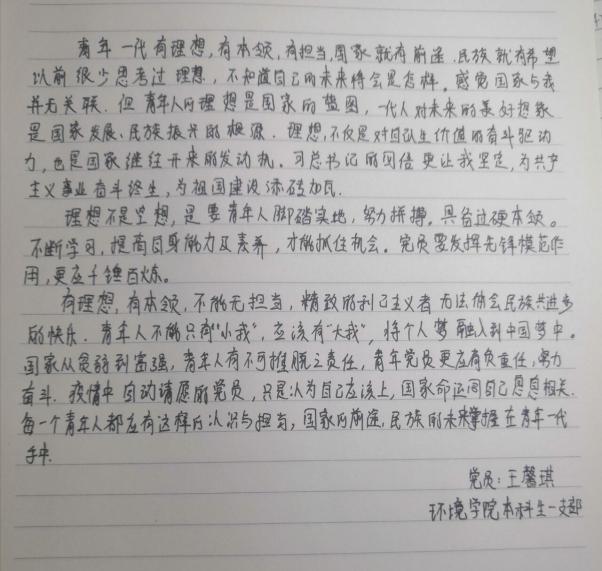 青年一代有理想,有本领,有担当,国家就有前途,民族就有希望
以前很少思考过理想,不知道自己的未来将会是怎样。感觉国家与我
并无关联。但青年人的理想是国家的蓝图,一代人对未来的美好想象
是国家发展、民族振兴的根源。理想,不仅是对自己人生价值的奋斗驱动
力,也是国家继往开来的发动机。习总书记的回信更让我坚定,为共产
主义事业奋斗终生,为祖国建设添砖加瓦.
理想不是空想,是要青年人脚踏实地,努力拼搏。具备过硬本领。
不断学习,提高自身能力及素养,才能抓住机会。党员要发挥先锋模范作
用,更应千锤百炼。
有理想,有本领,不能无担当,精致的利己主义者无法体会民族共进步
的快乐.青年人不能只有“小我”,应该有“大我”,将个人梦融入到中国梦中。
国家从贫弱到富强,青年人有不可推脱之责任,青年党员更应有负重任,努力
奋斗.疫情中自动请愿的党员,只是认为自己应该上,国家命运同自己息息相关.
每一个青年人都应有这样的认识与担当,国家的前途,民族的未来掌握在青年一代
手中.
党员:王馨琪
环境学院本科生一支部